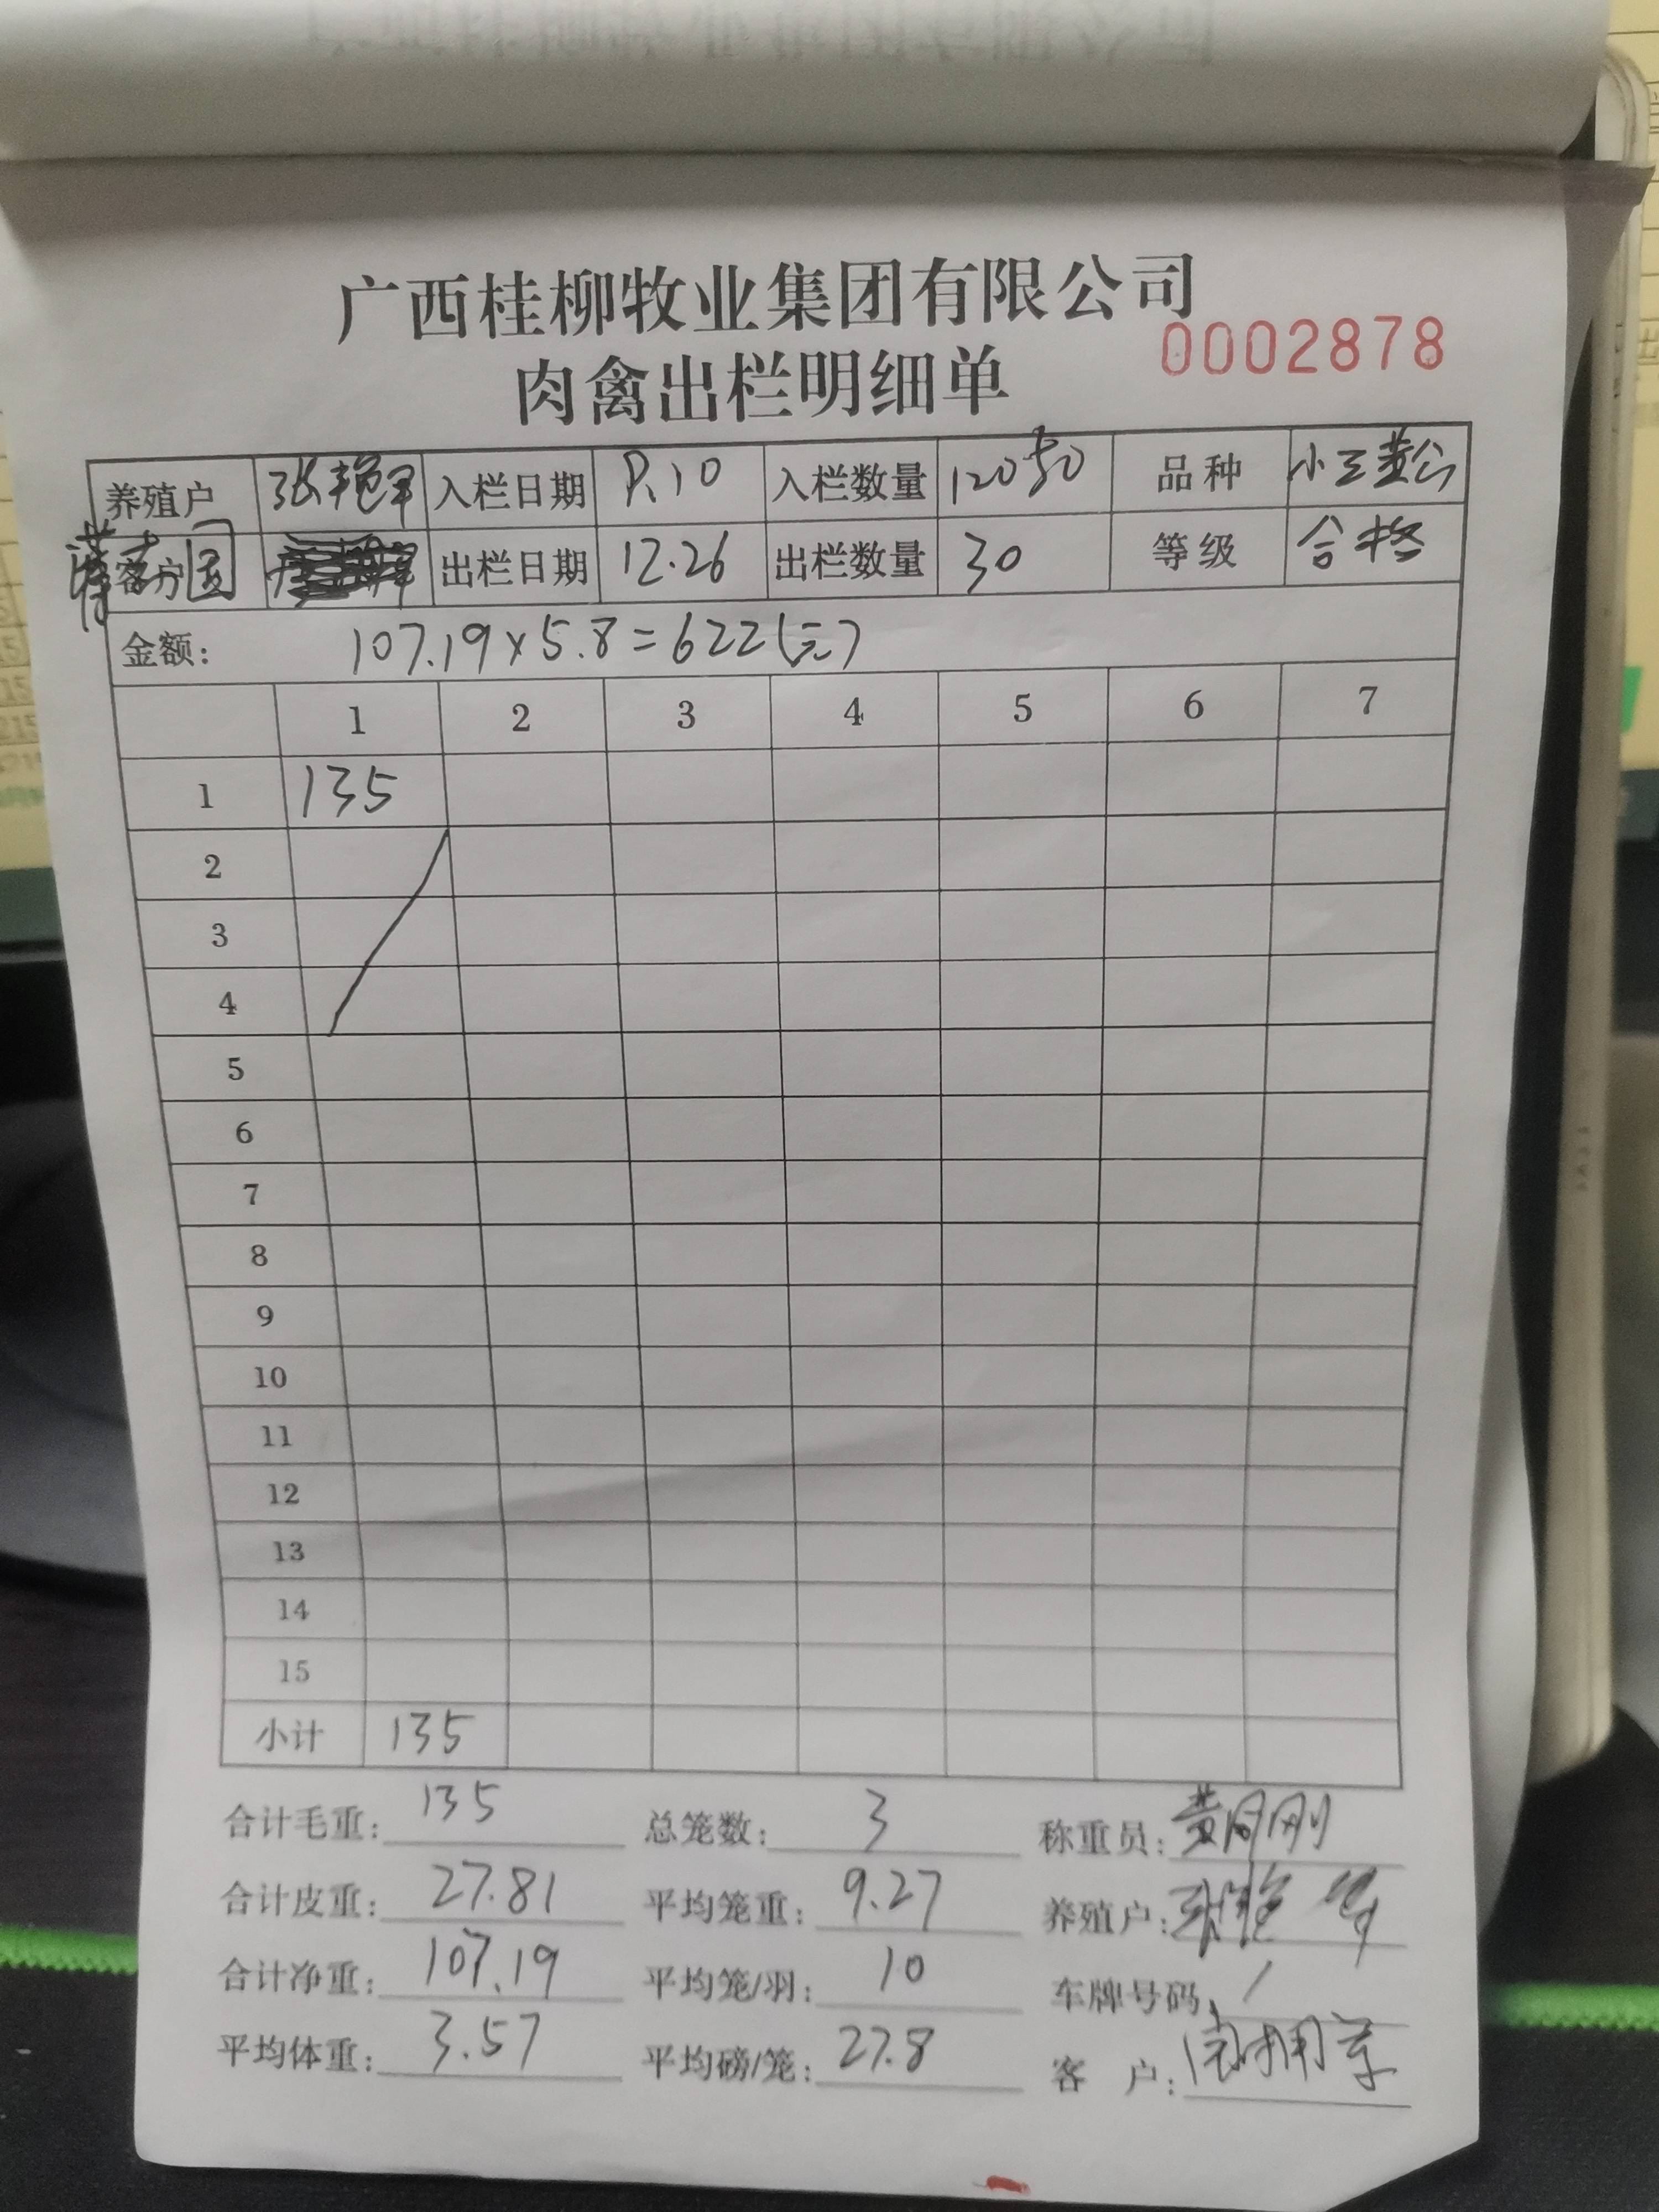 广西桂柳牧业集团有限公司
0002878
肉禽出栏明细单
养殖户 张艳军 入栏日期 8.10 入栏数量 12050 品种 小三黄公
客户 出栏日期 12.26 出栏数量 30 等级 合格
金额: 107.19×5.8=622(元)
1 2 3 4 5 6 7
1 135
2
3
4
5
6
7
8
9
10
11
12
13
14
15
小计 135
合计毛重: 135 总笼数: 3 称重员:
合计皮重: 27.81 平均笼重: 9.27 养殖户:
合计净重: 107.19 平均笼/羽: 10 车牌号码: /
平均体重: 3.57 平均磅/笼: 27.8 客 户: